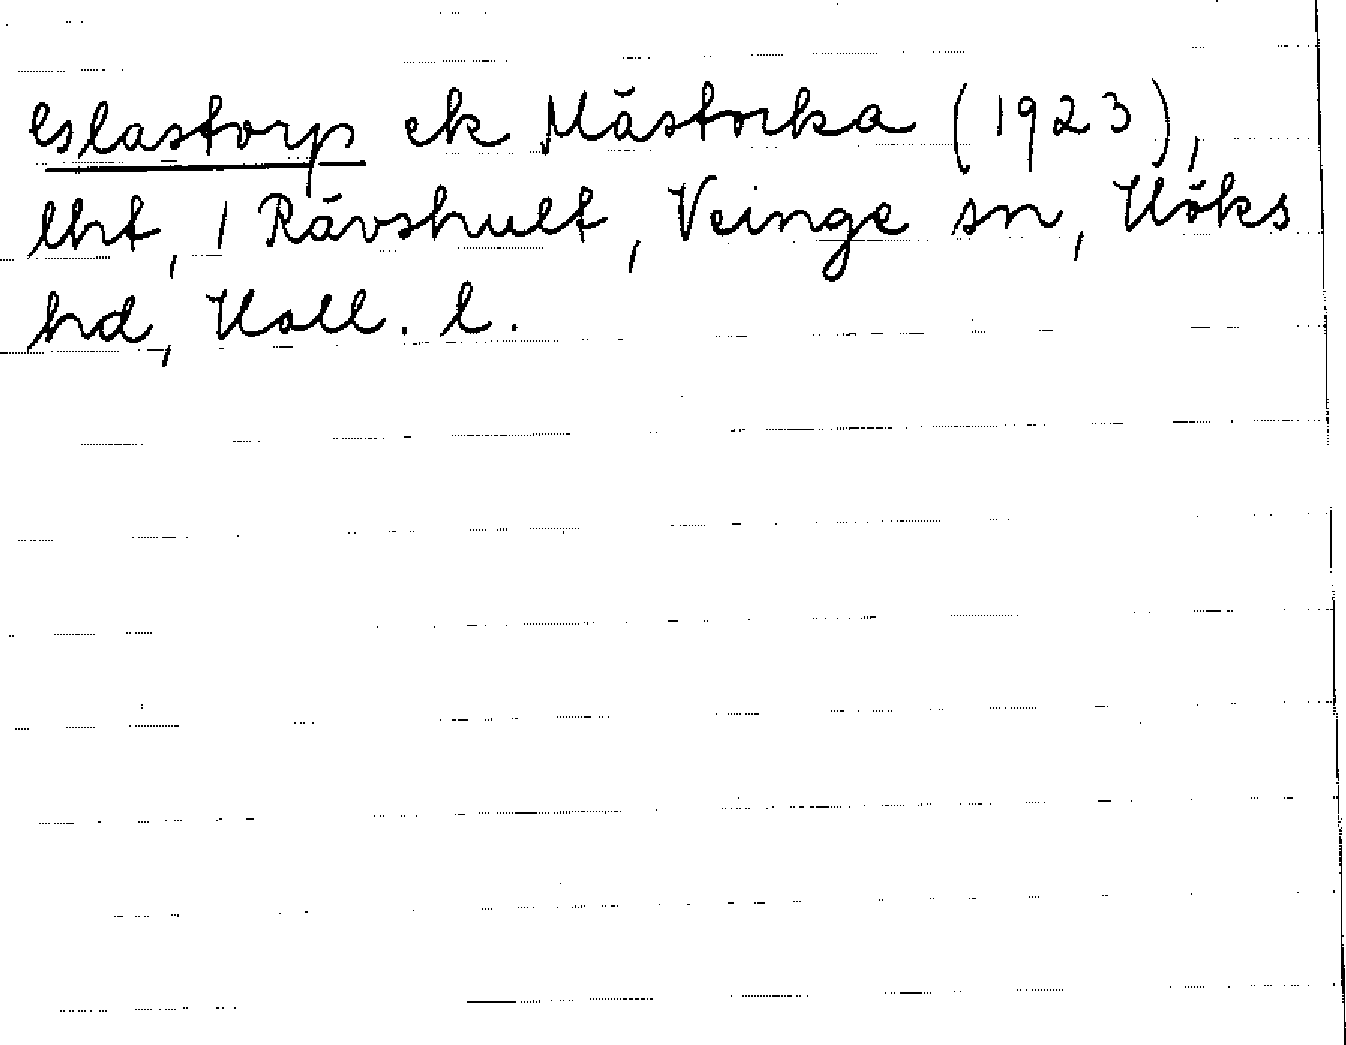 Eslastorp ek Mästocka (1923),
lht, 1 Rävshult, Veinge sn, Höks
hd, Hall. l.